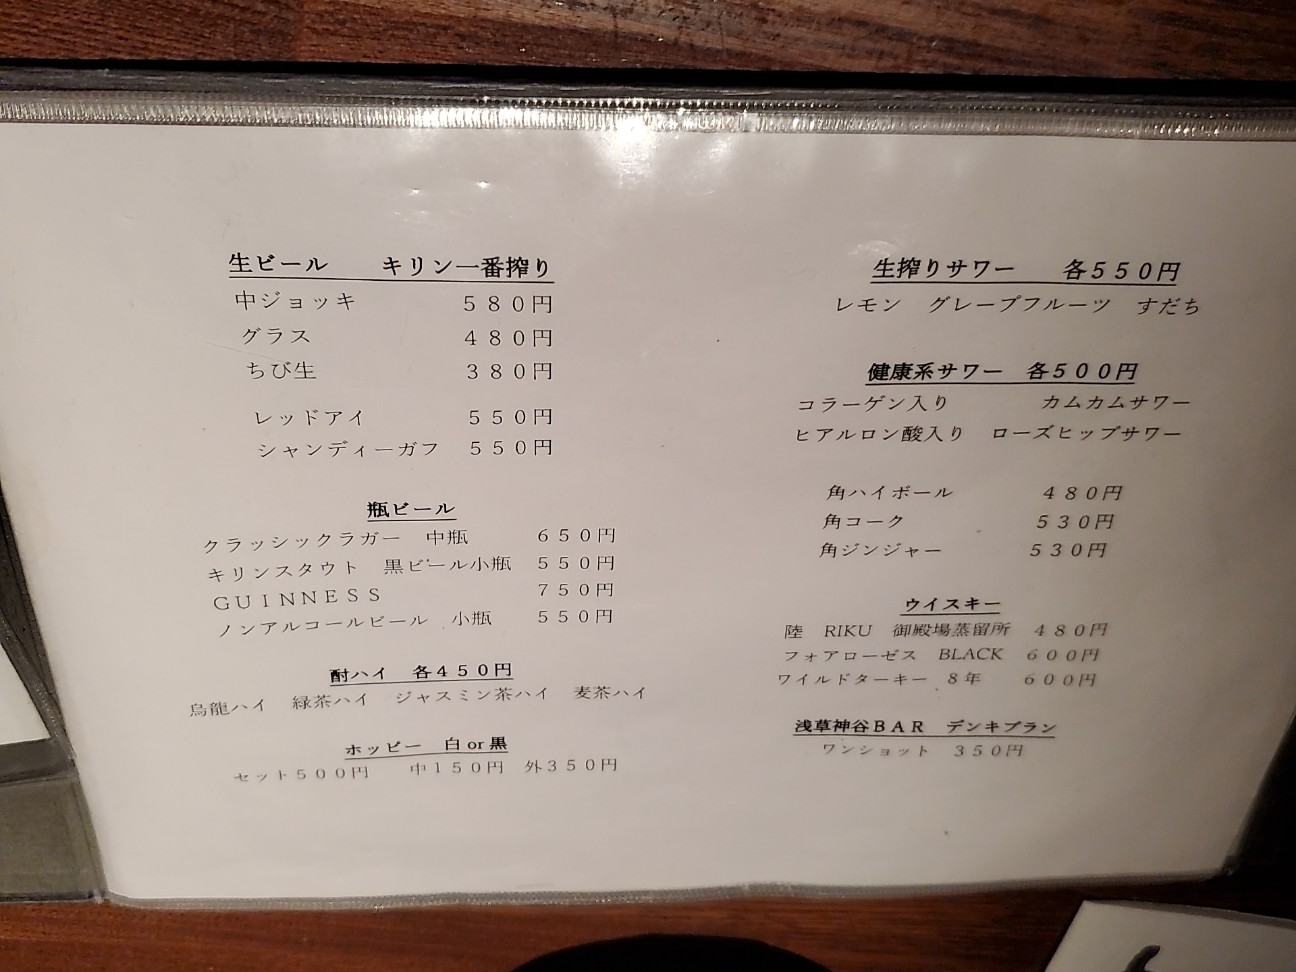 生ビール　キリン一番搾り
中ジョッキ　５８０円
グラス　４８０円
ちび生　３８０円
レッドアイ　５５０円
シャンディーガフ　５５０円
瓶ビール
クラッシックラガー　中瓶　６５０円
キリンスタウト　黒ビール小瓶　５５０円
ＧＵＩＮＮＥＳＳ　７５０円
ノンアルコールビール　小瓶　５５０円
酎ハイ　各４５０円
烏龍ハイ　緑茶ハイ　ジャスミン茶ハイ　麦茶ハイ
ホッピー　白 or 黒
セット５００円　中１５０円　外３５０円
生搾りサワー　各５５０円
レモン　グレープフルーツ　すだち
健康系サワー　各５００円
コラーゲン入り　カムカムサワー
ヒアルロン酸入り　ローズヒップサワー
角ハイボール　４８０円
角コーク　５３０円
角ジンジャー　５３０円
ウイスキー
陸　RIKU　御殿場蒸留所　４８０円
フォアローゼス　BLACK　６００円
ワイルドターキー　８年　６００円
浅草神谷ＢＡＲ　デンキブラン
ワンショット　３５０円